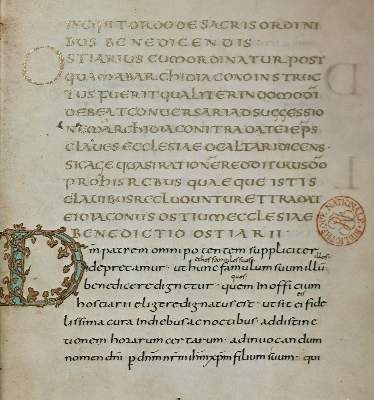 INCIPIT ORDO DE SACRIS ORDINI
BUS BENEDICENDIS
OSTIARIUS CUM ORDINATUR POST
QUAM AB ARCHIDIACONO INSTRUC
TUS FUERIT QUALITER IN DOMO DĪ
DEBEAT CONVERSARI AD SUGGESSIO
NEM ARCHIDIACONI TRADAT EI EPS
CLAVES ECCLESIAE DE ALTARI DICENS
SIC AGE QUASI RATIONEM REDDITURUS DŌ
PRO HIS REBUS QUAE QUE ISTIS
CLAVIBUS RECLUDUNTUR ET TRADAT
EI DIACONUS OSTIUM ECCLESIAE
BENEDICTIO OSTIARII
Dm patrem omnipotentem suppliciter
deprecamur · ut hunc famulum suum illū
benedicere dignetur · quem in officium
hostiarii eligere dignatus est · ut sit ei fide
lissima cura in diebus ac noctibus · ad distinc
tionem horarum certarum · ad invocandum
nomen dni p dnm nrm ihm xpm filium suum · qui
NATIONALE